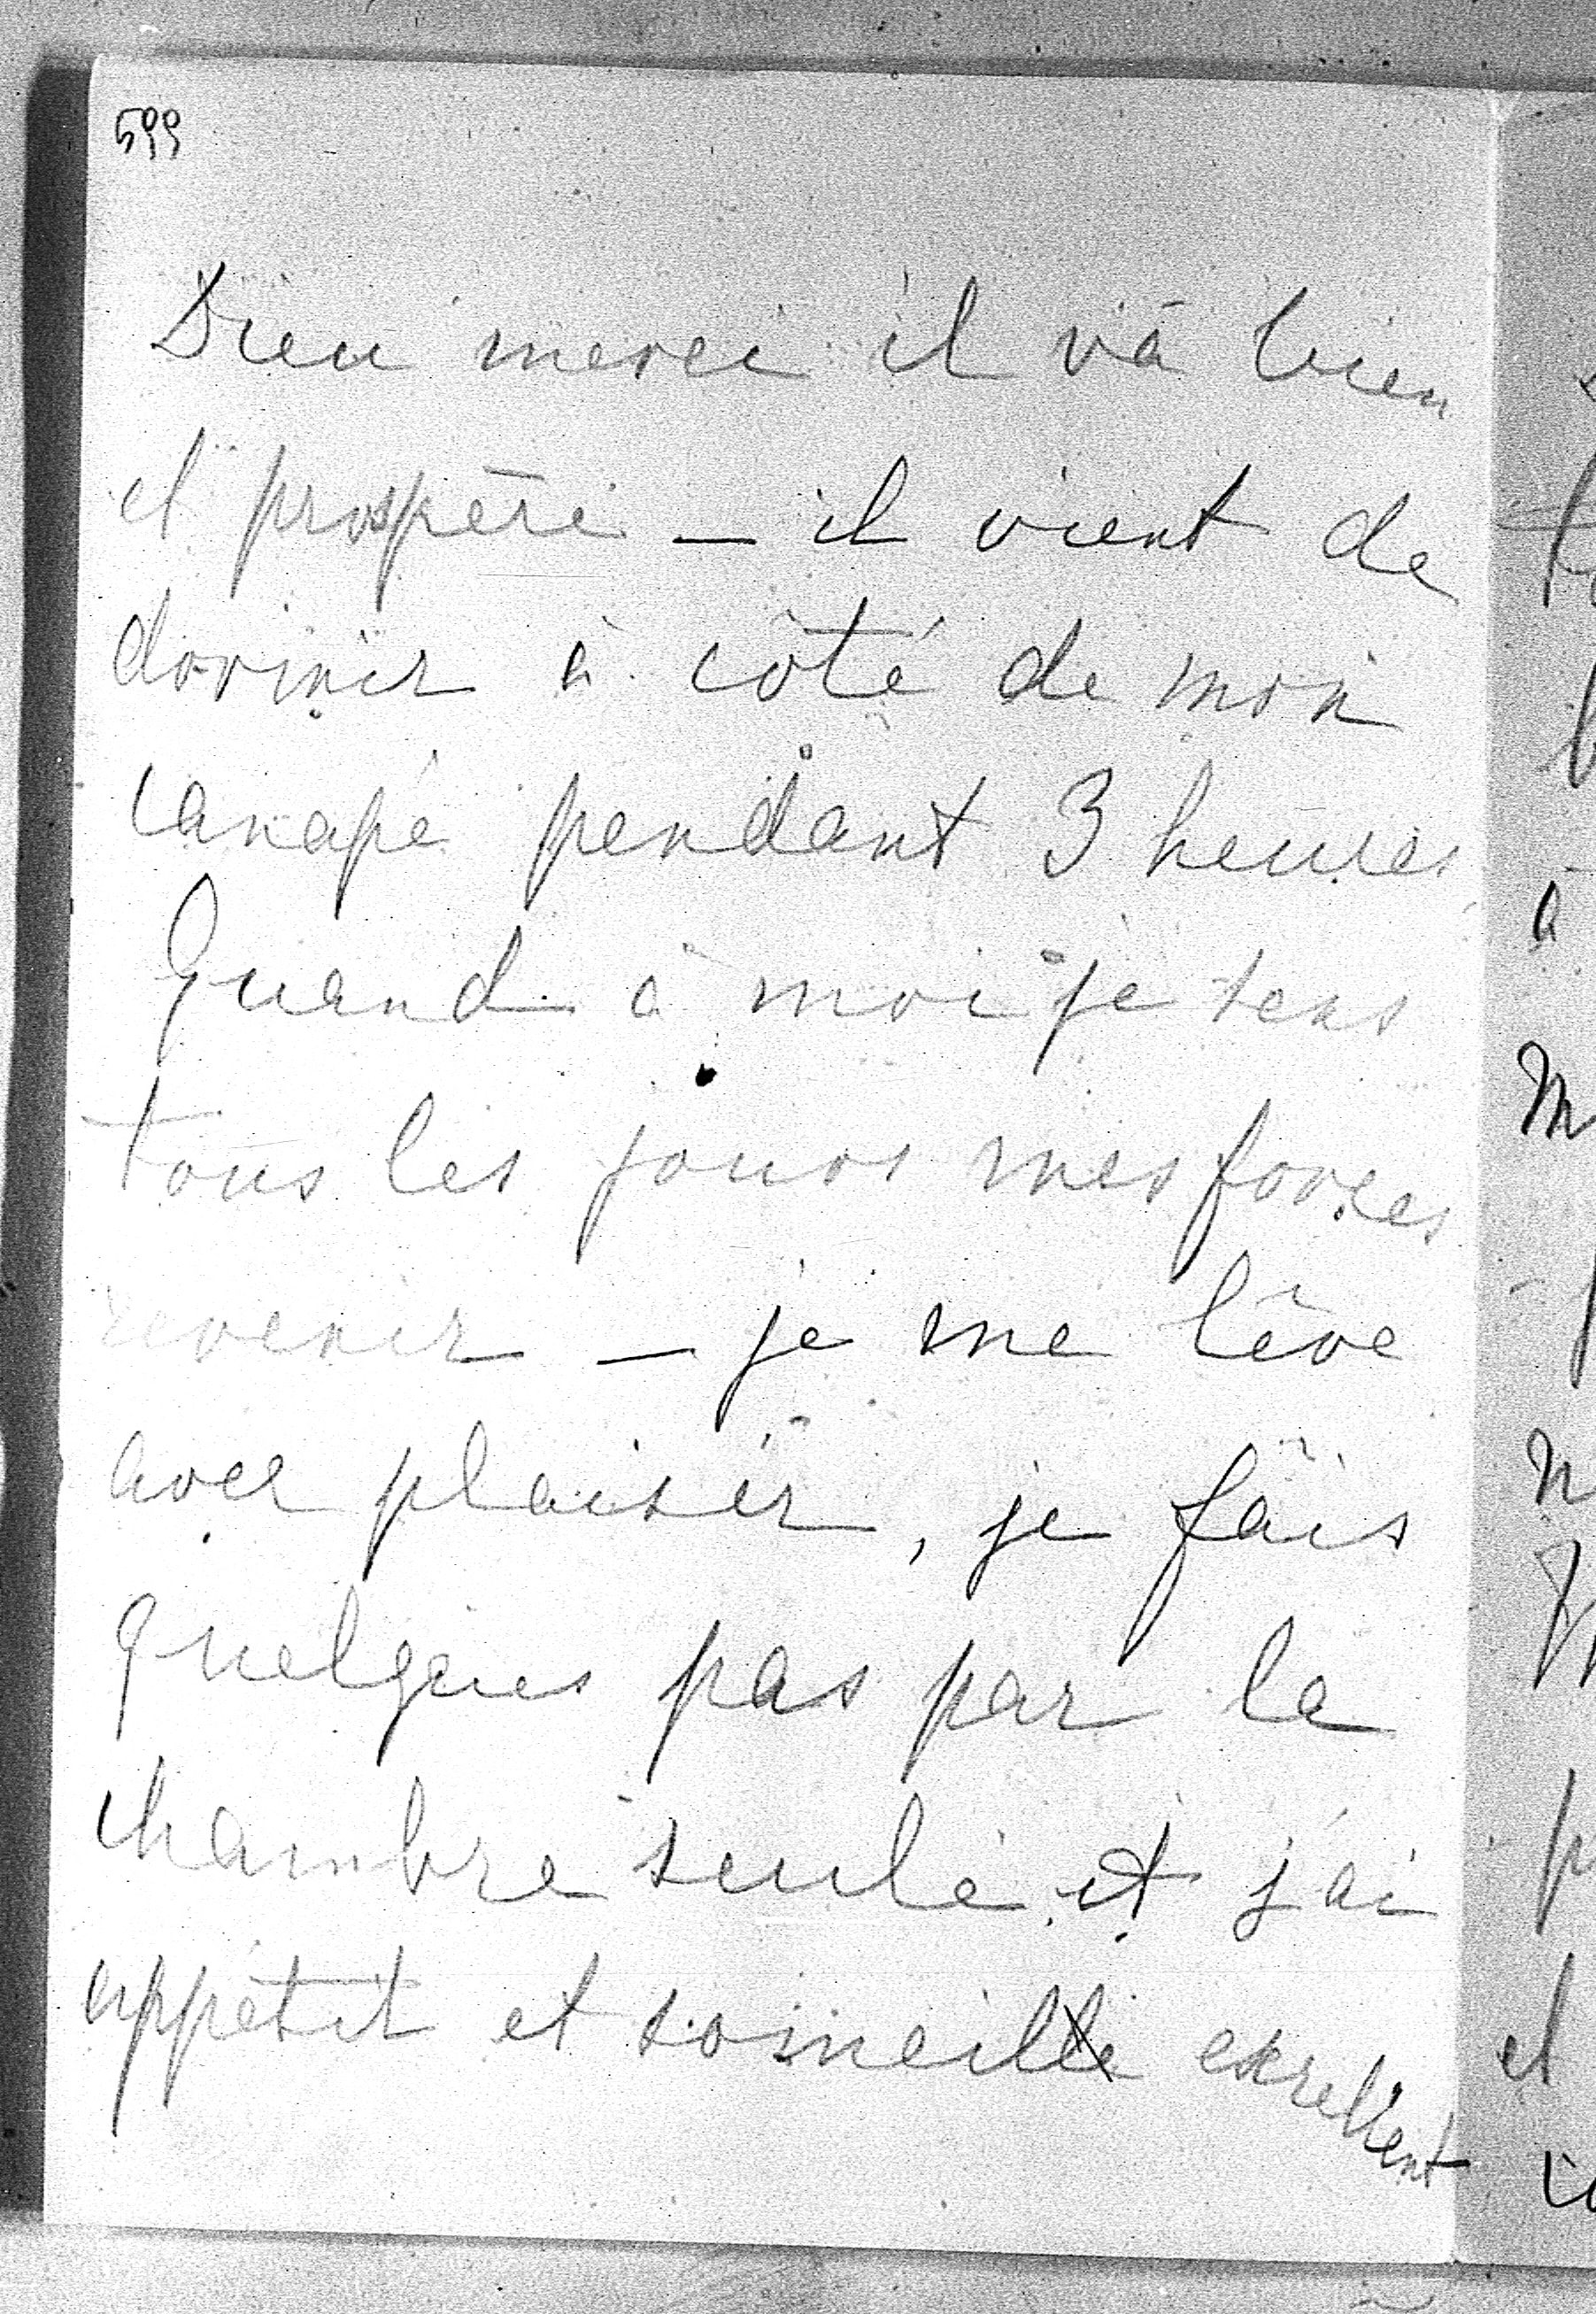 599
Dieu merci il va bien
et prospère – il vient de
dormir à côté de mon
canapé pendant 3 heures
Quand à moi je sens
tous les jours mes forces
revenir – je me lève
avec plaisir, je fais
quelques pas par la
chambre seule et j'ai
appétit et someille excellent